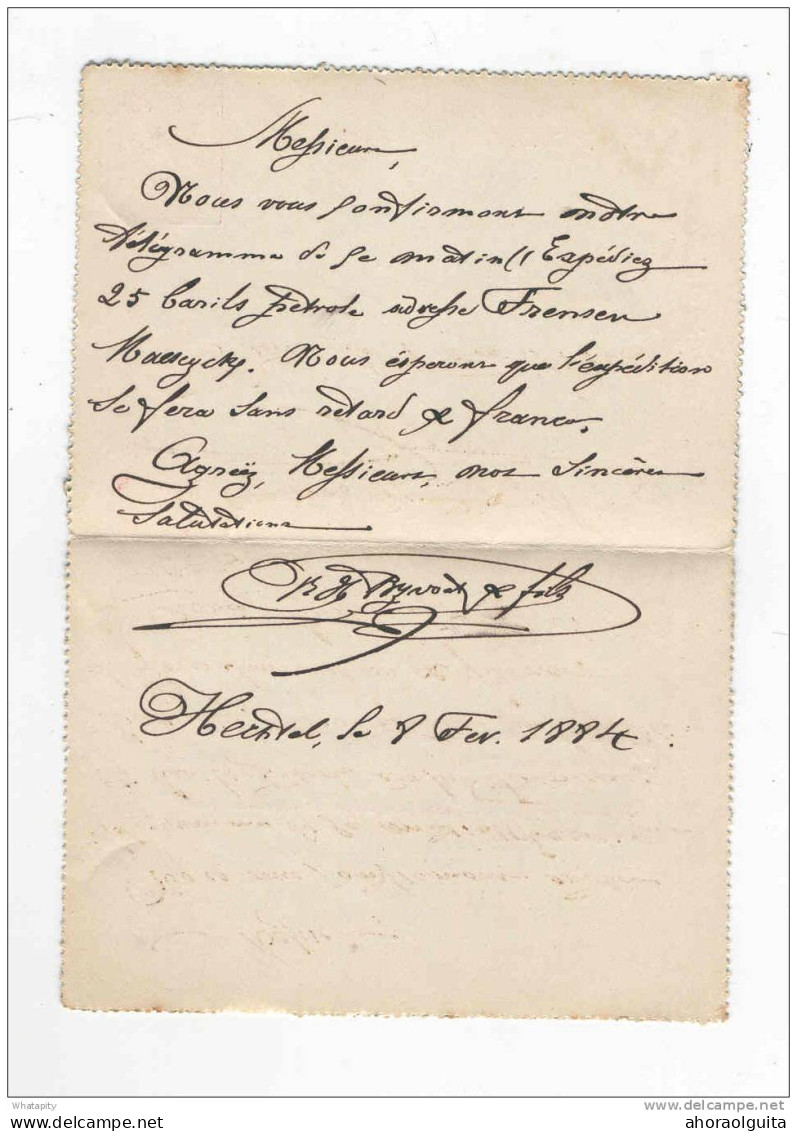 Messieurs,
Nous vous confirmons notre
télégramme de ce matin (( Expédiez
25 barils pétrole adresse Frensen
Maeseyck. Nous espérons que l'expédition
se fera sans retard & franco.
Agréez, Messieurs, nos sincères
salutations
& fils
Hechtel, le 8 Fev. 1884.
Whatapity
delcampe.net
ahoraolguita